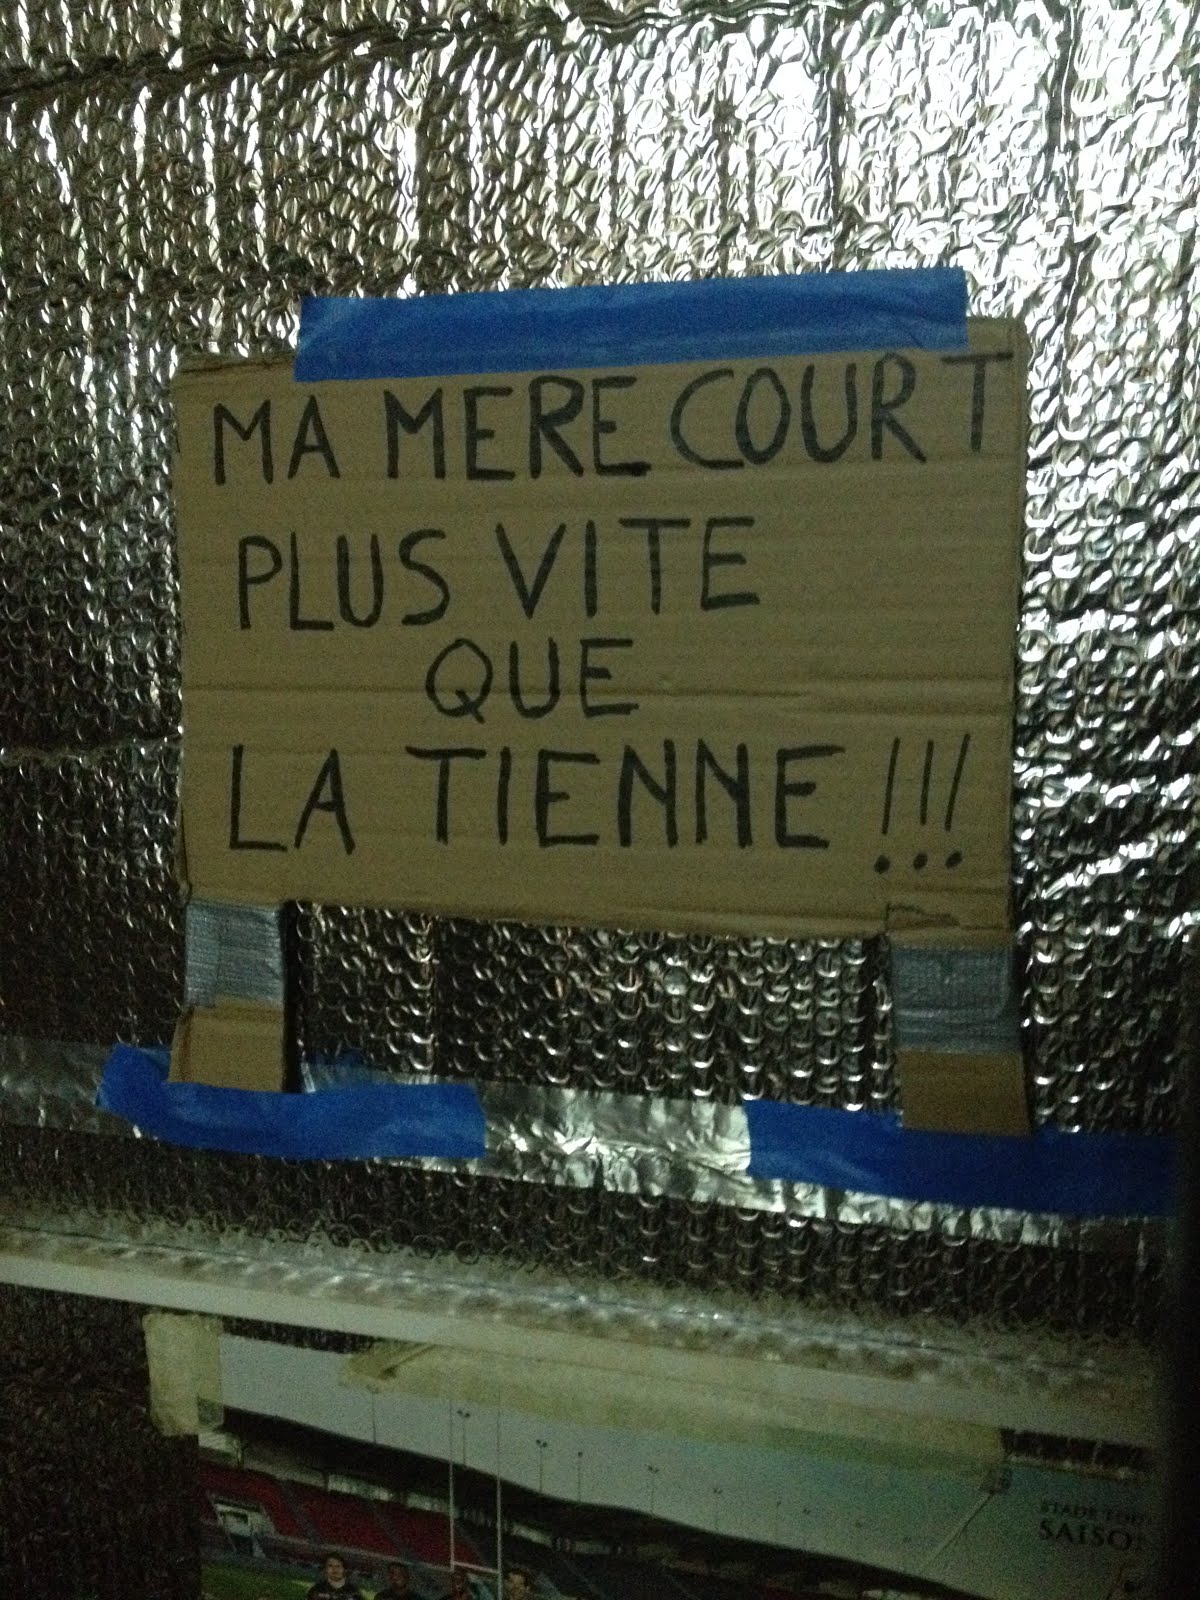 MA MERE COURT
PLUS VITE
QUE
LA TIENNE !!!
STADE TOU
SAISO